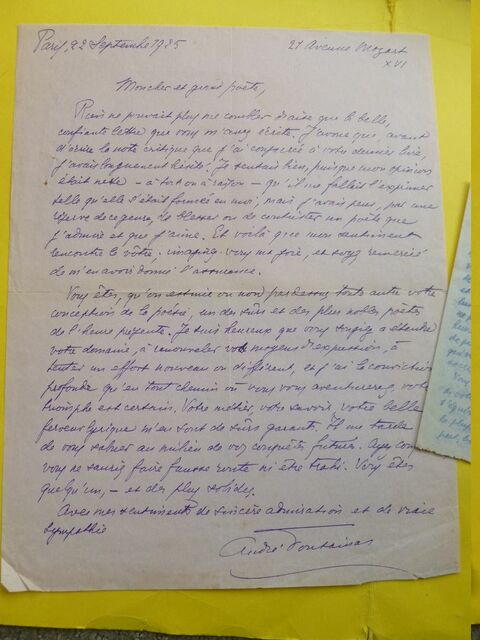 Paris, 22 Septembre 1925
21 Avenue Mozart
XVI
Mon cher et grand poète,
Rien ne pouvait plus me combler d'aise que la belle,
confiante lettre que vous m'avez écrite. J'avoue que, avant
d'écrire la note critique que j'ai consacrée à votre dernier livre,
j'avais longuement hésité. Je sentais bien, puisque mon opinion
était nette – à tort ou à raison – qu'il me fallait l'exprimer
telle qu'elle s'était formée en moi, mais j'avais peur, par une
de ce genre, de blesser ou de contrister un poète que
j'admire et que j'aime. Et voilà que mon sentiment
rencontre le vôtre, vous me, et soyez remercié
de m'en avoir donné l'assurance.
Vous êtes, qu'on estime ou non par dessus toute autre votre
conception de la poésie, un des surs et des plus nobles poètes
de l'heure présente. Je suis heureux que vous songiez à étendre
votre domaine, à renouveler vos moyens d'expression, à
tenter un effort nouveau ou différent, et j'ai la conviction
profonde qu'en tout chemin où vous vous aventurerez, votre
triomphe est certain. Votre métier, votre savoir, votre belle
ferveur lyrique m'en sont de surs garants. Il me tarde
de vous saluer au milieu de vos conquêtes futures. Ayez
vous ne sauriez faire fausse route ni être trahi. Vous êtes
quelqu'un, – et des plus solides.
Avec mes sentiments de sincère admiration et de vraie
sympathie
André Fontainas